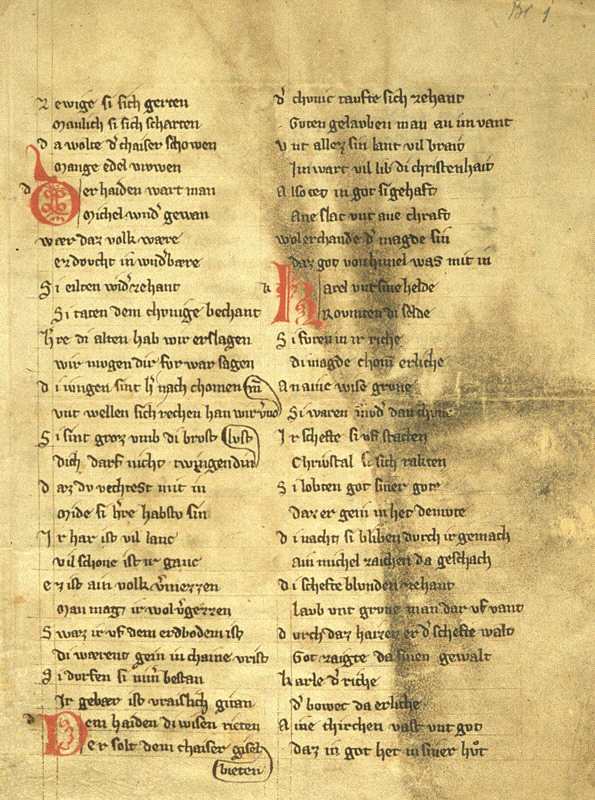 Br 1
R ewige si sich gerten
Manlich si sich scharten
D a wolte d' chaiser schowen
Mange edel vrowen
D er haiden wart man
Michel wnd' gewan
wær daz volk wære
er dovcht in wnd'bære
S i eilten wid' zehant
Si taten dem chonige bechant
H're di alten hab wir erslagen
wir mugen dir for war sagen
D i iungen sint h' nach chomen
vnt wellen sich rechen han wir
S i sint groz vmb di brost lvst
dich darf nicht twingen din
D az dv vechtest mit in
Mide si h're habstv sin
I r har ist vil lanc
vil schone ist ir ganc
e z ist ain volk v'mezzen
Man mag ir wol v'gezzen
S waz ir vf dem erdbodem ist
di wærent gein in chaine vrist
S i dorfen si nim' bestan
Ir gebær ist vraislich getan
D em haiden di wisen rieten
er solt dem chaiser gisel
bieten
d' chonic taufte sich zehant
Goten gelauben man an im vant
V nt allez sin lant vil brait
Im wart vil lib di christenhait
A lso tet in got sigehaft
Ane slac vnt ane chraft
wol erchande d' magde sin
daz got von himel was mit in
K arel vnt sine helde
Rovmten di selde
S i foren in ir riche
di magde chom erliche
A n ainic wise grone
Si waren mvd' dan
I r schefte si vf stacten
Christal si sich rakten
S i lobten got siner gote
Daz er gein in het demote
D i nacht si bliben durch ir gemach
Ain michel zaichen da geschach
D i schefte blvnden zehant
Laub vnt grone man dar vf vant
D vrch daz haizet er d' schefte walt
Got zaigte da sinen gewalt
Karle d' riche
d' bowet da erliche
A ine chirchen vast vnt got
Daz in got het in siner hvt